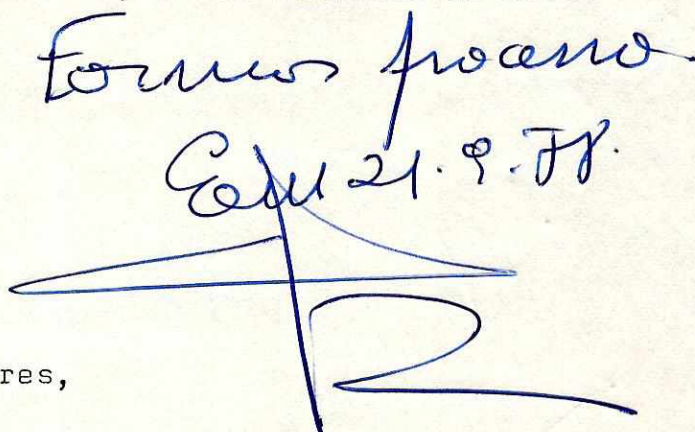 Formar processo
Em 21.9.78.
res,